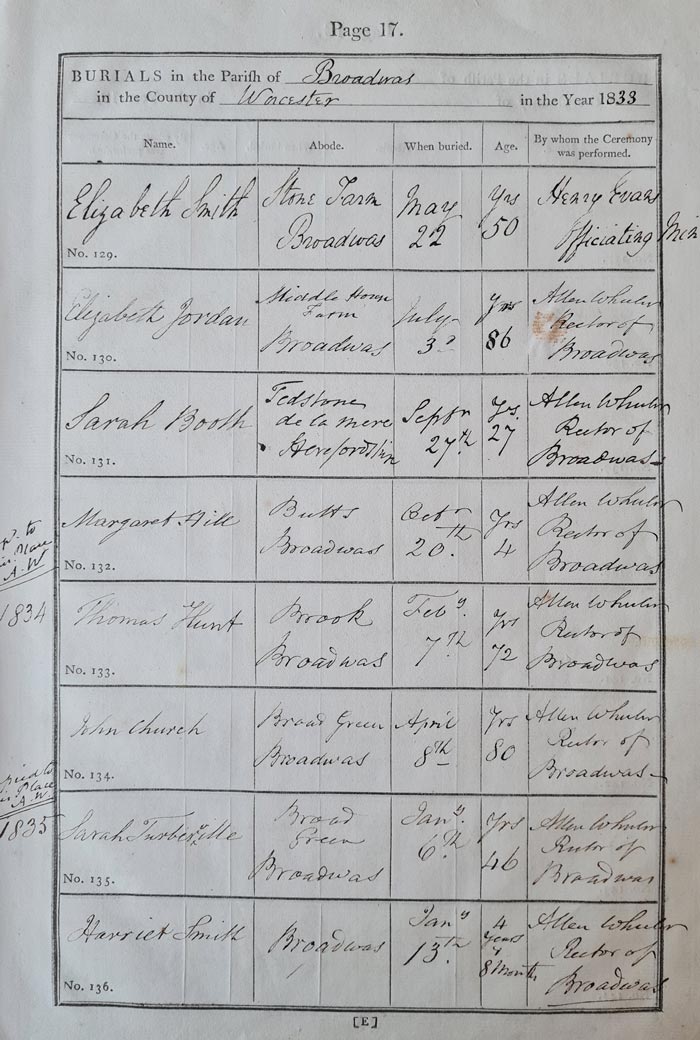 Page 17.
BURIALS in the Parish of Broadwas
in the County of Worcester in the Year 1833
Name. Abode. When buried. Age. By whom the Ceremony was performed.
Elizabeth Smith
No. 129.
Stone Farm
Broadwas
May
22
Yrs
50
Henry Evans
Officiating Min
Elizabeth Jordan
No. 130.
Middle House
Farm
Broadwas
July
3d
Yrs
86
Allen Wheeler
Rector of
Broadwas
Sarah Booth
No. 131.
Tedstone
de la mere
Herefordshire
Septr
27th
Yrs.
27
Allen Wheeler
Rector of
Broadwas
Margaret Hill
No. 132.
Butts
Broadwas
Octr
20th
Yrs
4
Allen Wheeler
Rector of
Broadwas
to
Place
A.W
1834
Thomas Hunt
No. 133.
Brook
Broadwas
Feby.
7th
Yrs
72
Allen Wheeler
Rector of
Broadwas
John Church
No. 134.
Broad Green
Broadwas
April
8th
Yrs
80
Allen Wheeler
Rector of
Broadwas
to
Place
A.W.
1835
Sarah Turberville
No. 135.
Broad
Green
Broadwas
Jany.
6th
Yrs
46
Allen Wheeler
Rector of
Broadwas
Harriet Smith
No. 136.
Broadwas
Jany
13th.
4
Years
8 Months
Allen Wheeler
Rector of
Broadwas
[E]